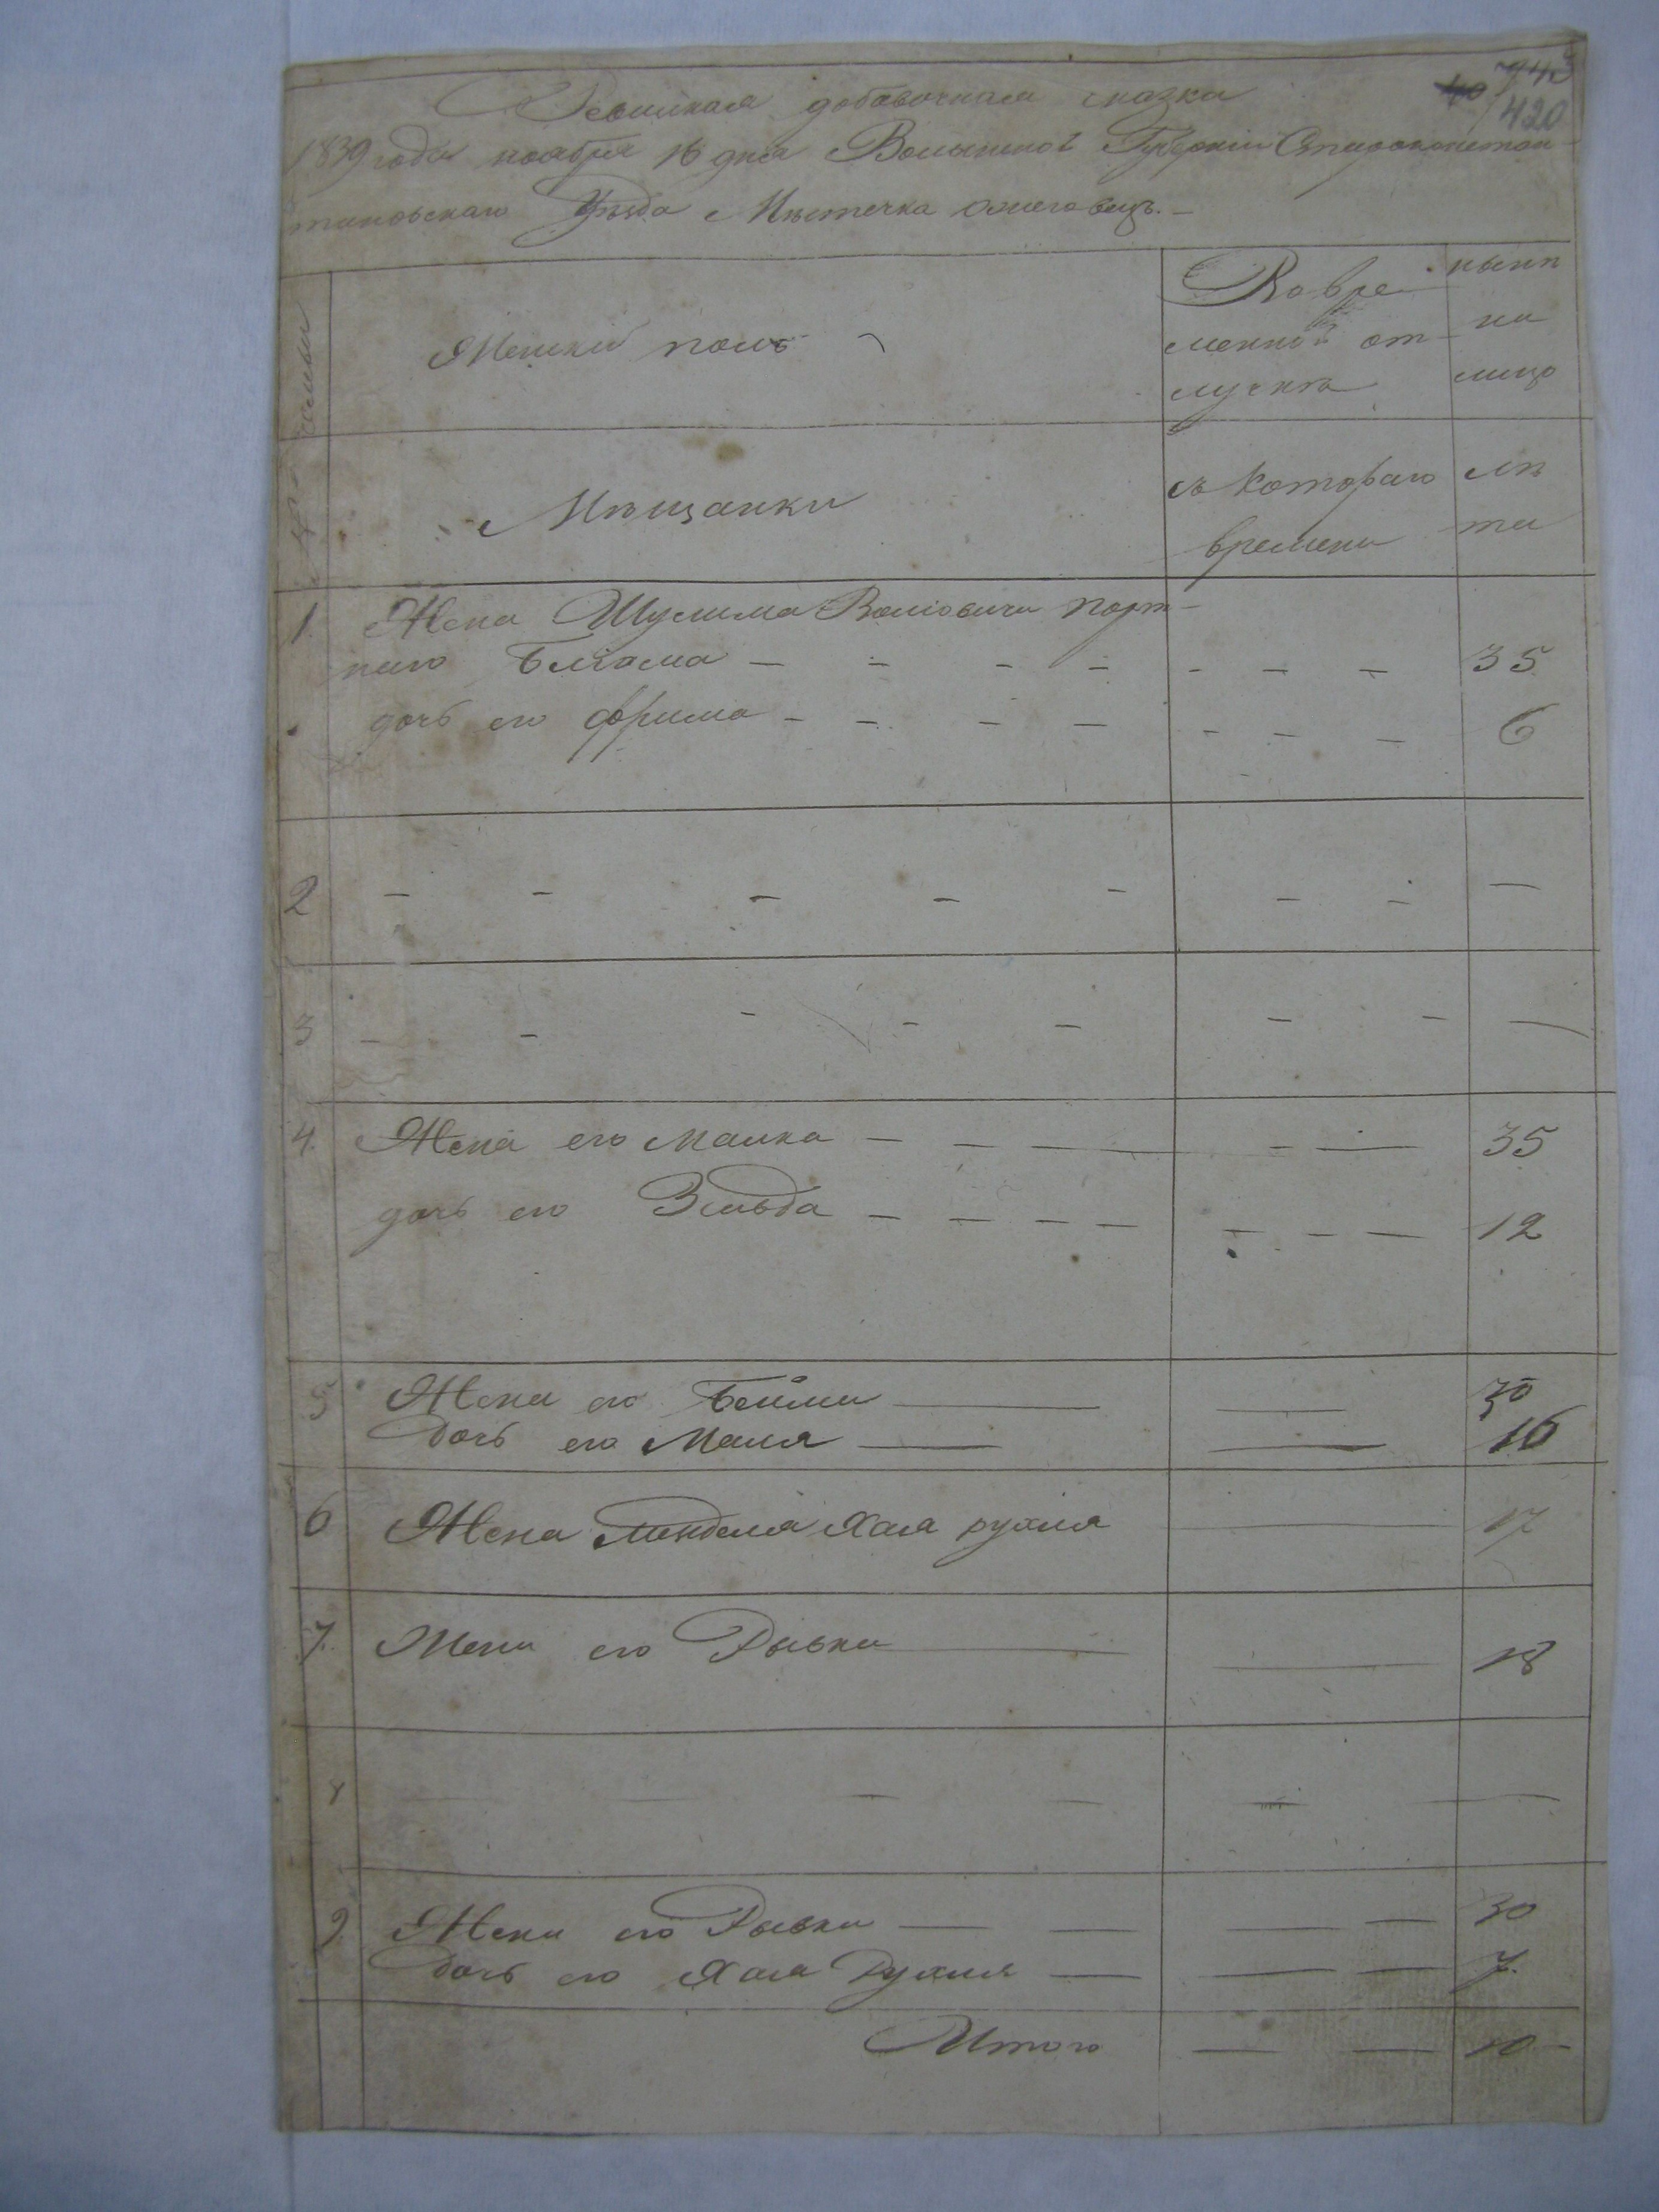 743
40 420
Ревизская добавочная сказка
1839 года ноября 16 дня Волынской Губернии Староконстан
тиновскаго Уѣзда Мѣстечка Ожеговецъ.
№ семьи
Женский полъ
Во вре
менной от
лучкѣ
нынѣ
на
лицо
Мѣщанки
съ котораго
времени
лѣ
та
1. Жена Шулима Волковича порт
наго Блюма — — — — — — — 35
дочь его Фрима — — — — — — — 6
2 — — — — — — — —
3 — — — — — — — —
4. Жена его Малка — — — — — 35
дочь его Зельда — — — — — — — 12
5 Жена его Бейла — — 30
дочь его Маля — — 16
6 Жена Менделя Хая рухля — 17
7. Жена его Рывка — — 18
8 — — — — — —
9 Жена его Рывка — — — — 30
дочь его Хая Рухля — — — 7.
Итого — — 10 —